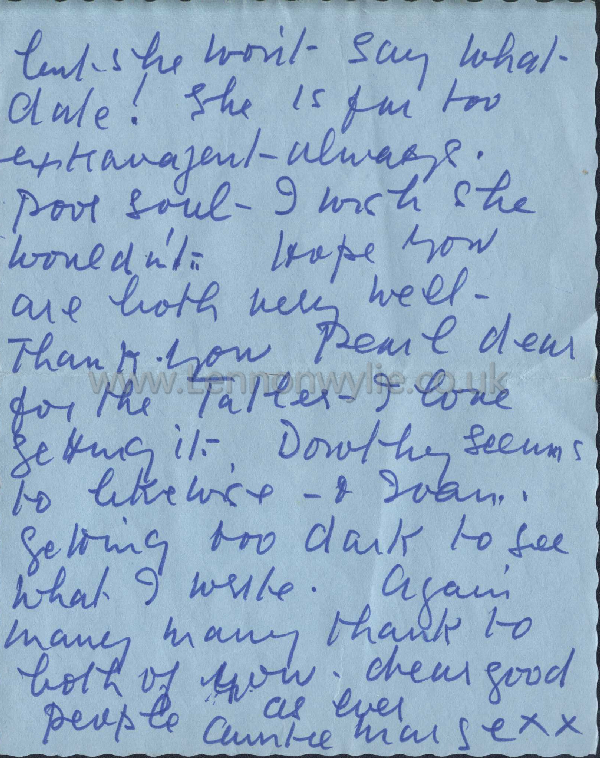 but she won't say what
date! She is far too
extravagent - always.
Poor soul - I wish she
wouldn't. Hope you
are both very well -
Thank you Pearl dear
www.Lennonwylie.co.uk
for the Tatler - I love
getting it. Dorothy seems
to likewise - & Joan.
getting too dark to see
what I write. Again
many many thank to
both of you. dear good
people as ever
Auntie Marge xx